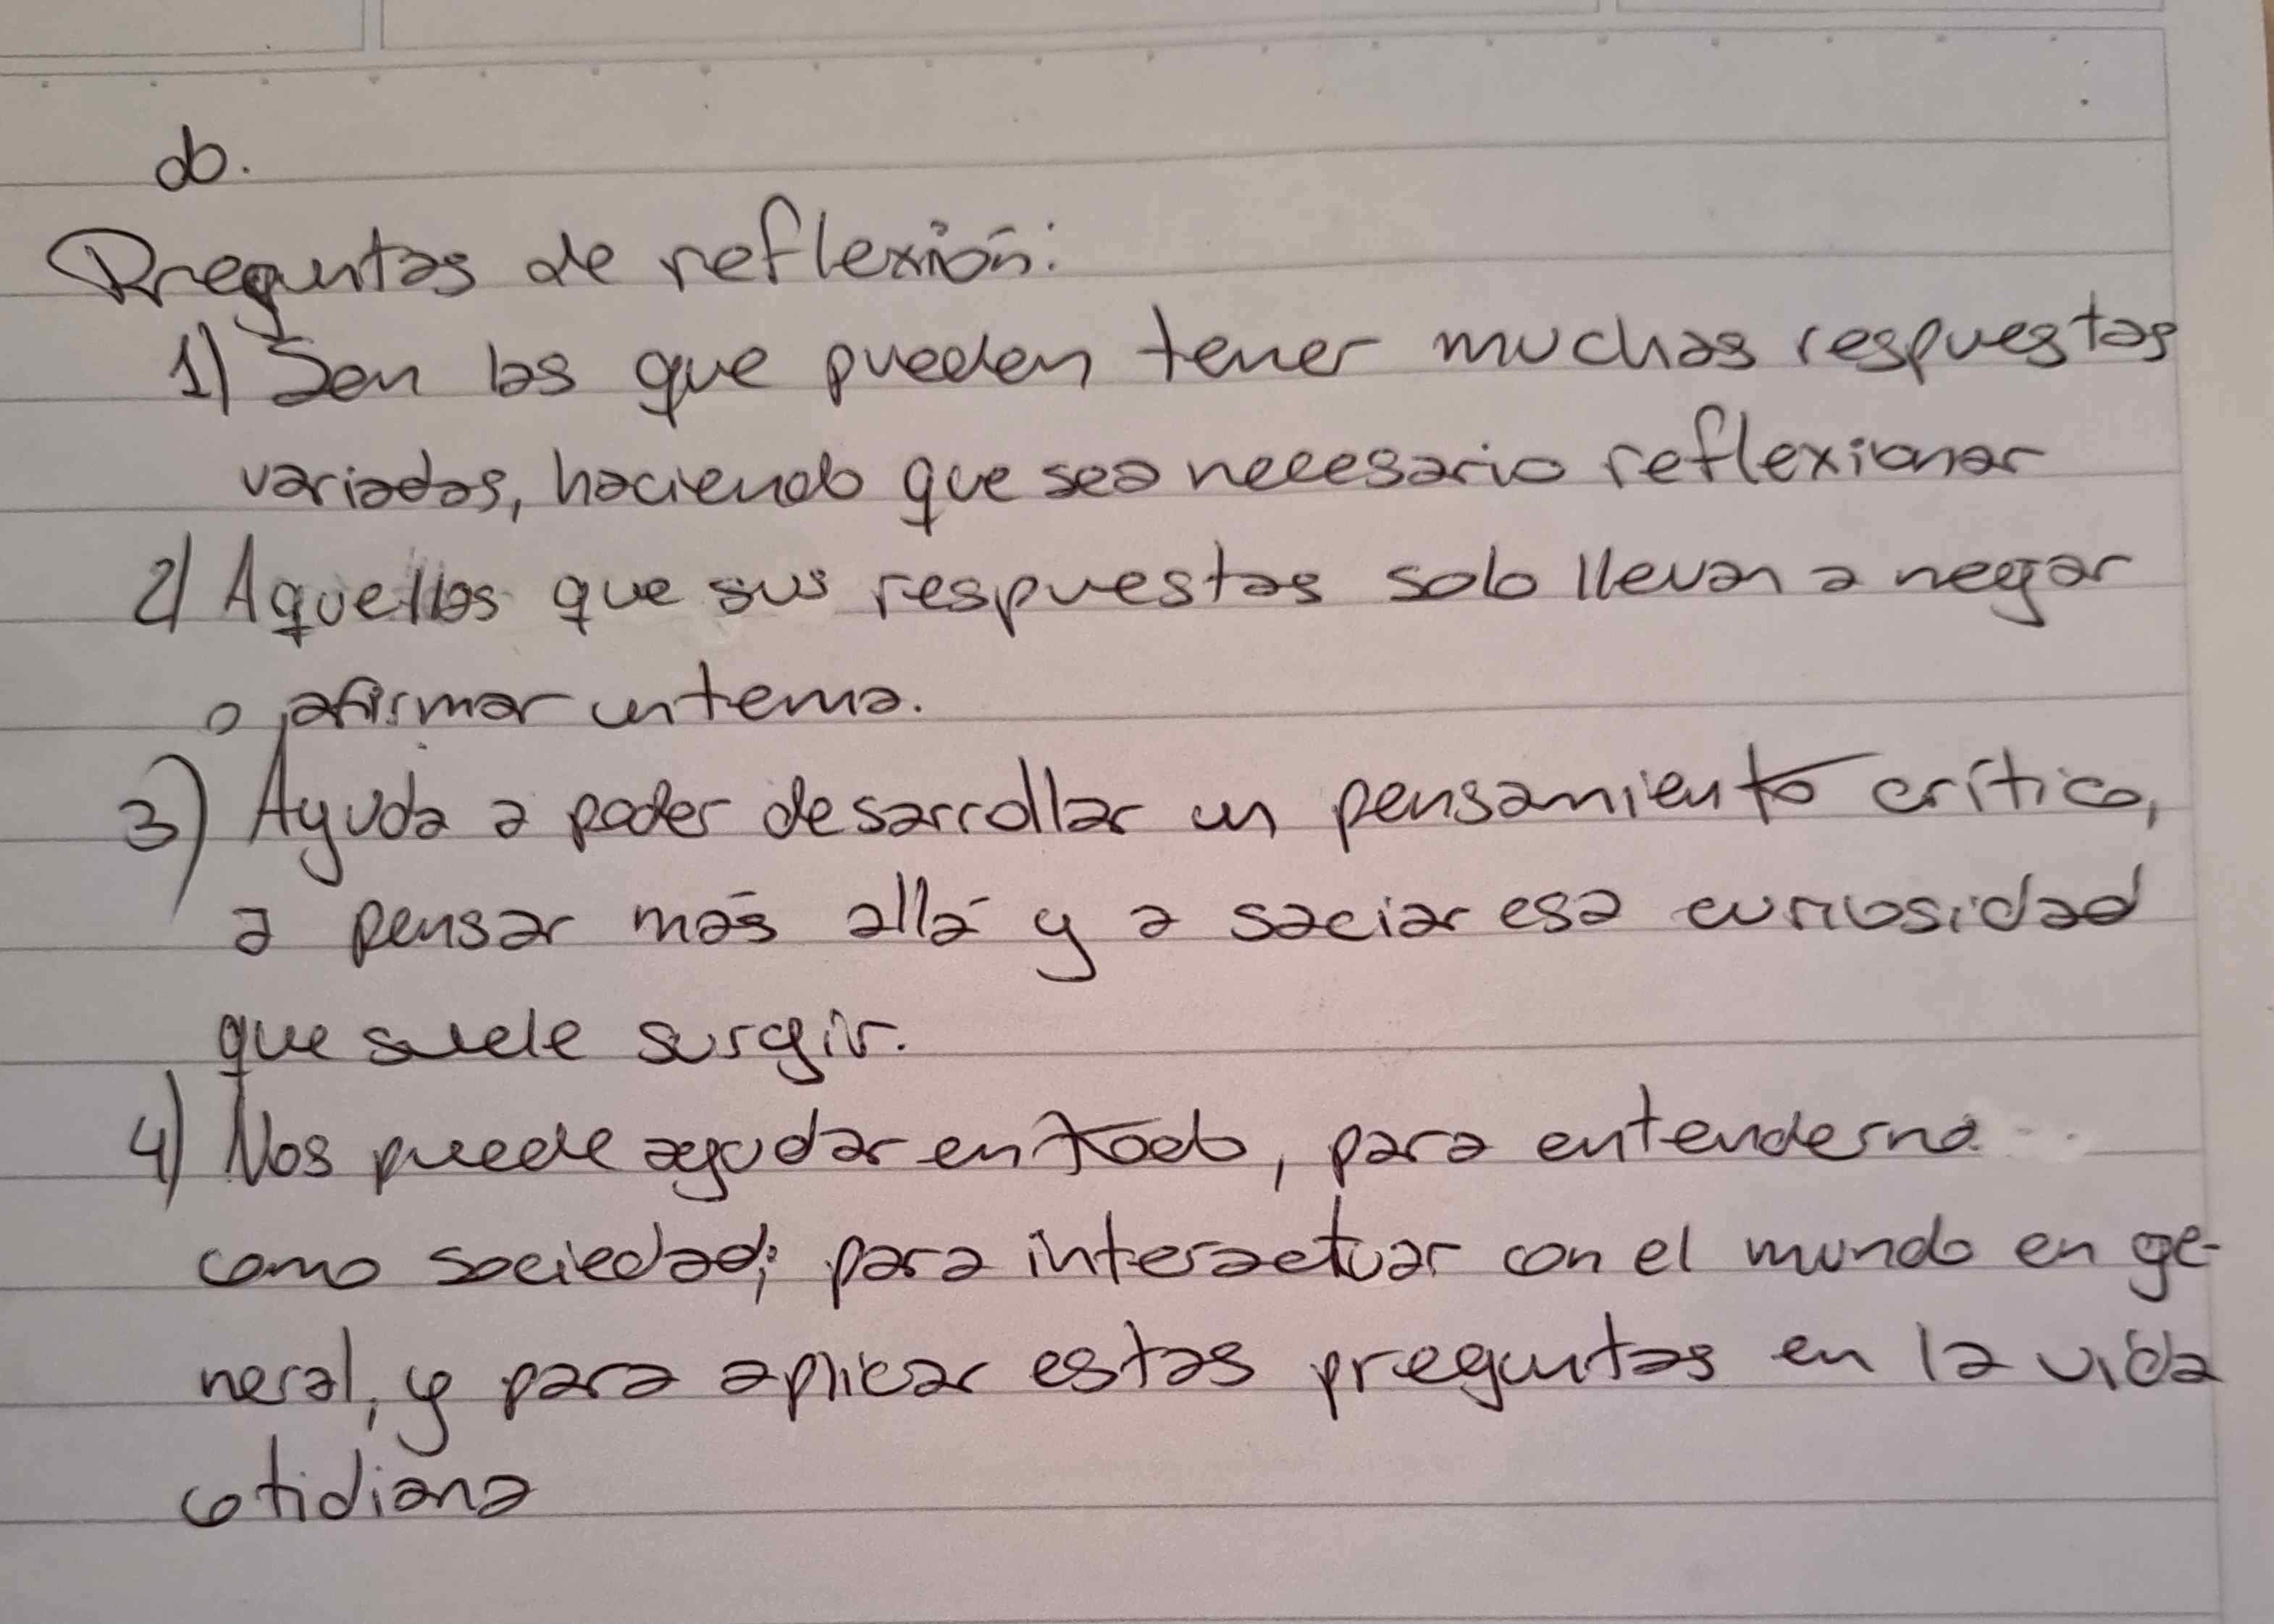 do.
Preguntas de reflexión:
1) Son las que pueden tener muchas respuestas
variadas, haciendo que sea necesario reflexionar
2) Aquellas que sus respuestas solo llevan a negar
o afirmar un tema.
3) Ayuda a poder desarrollar un pensamiento crítico,
a pensar más allá y a saciar esa curiosidad
que suele surgir.
4) Nos puede ayudar en todo, para entenderno
como sociedad; para interactuar con el mundo en ge-
neral, y para aplicar estas preguntas en la vida
cotidiana